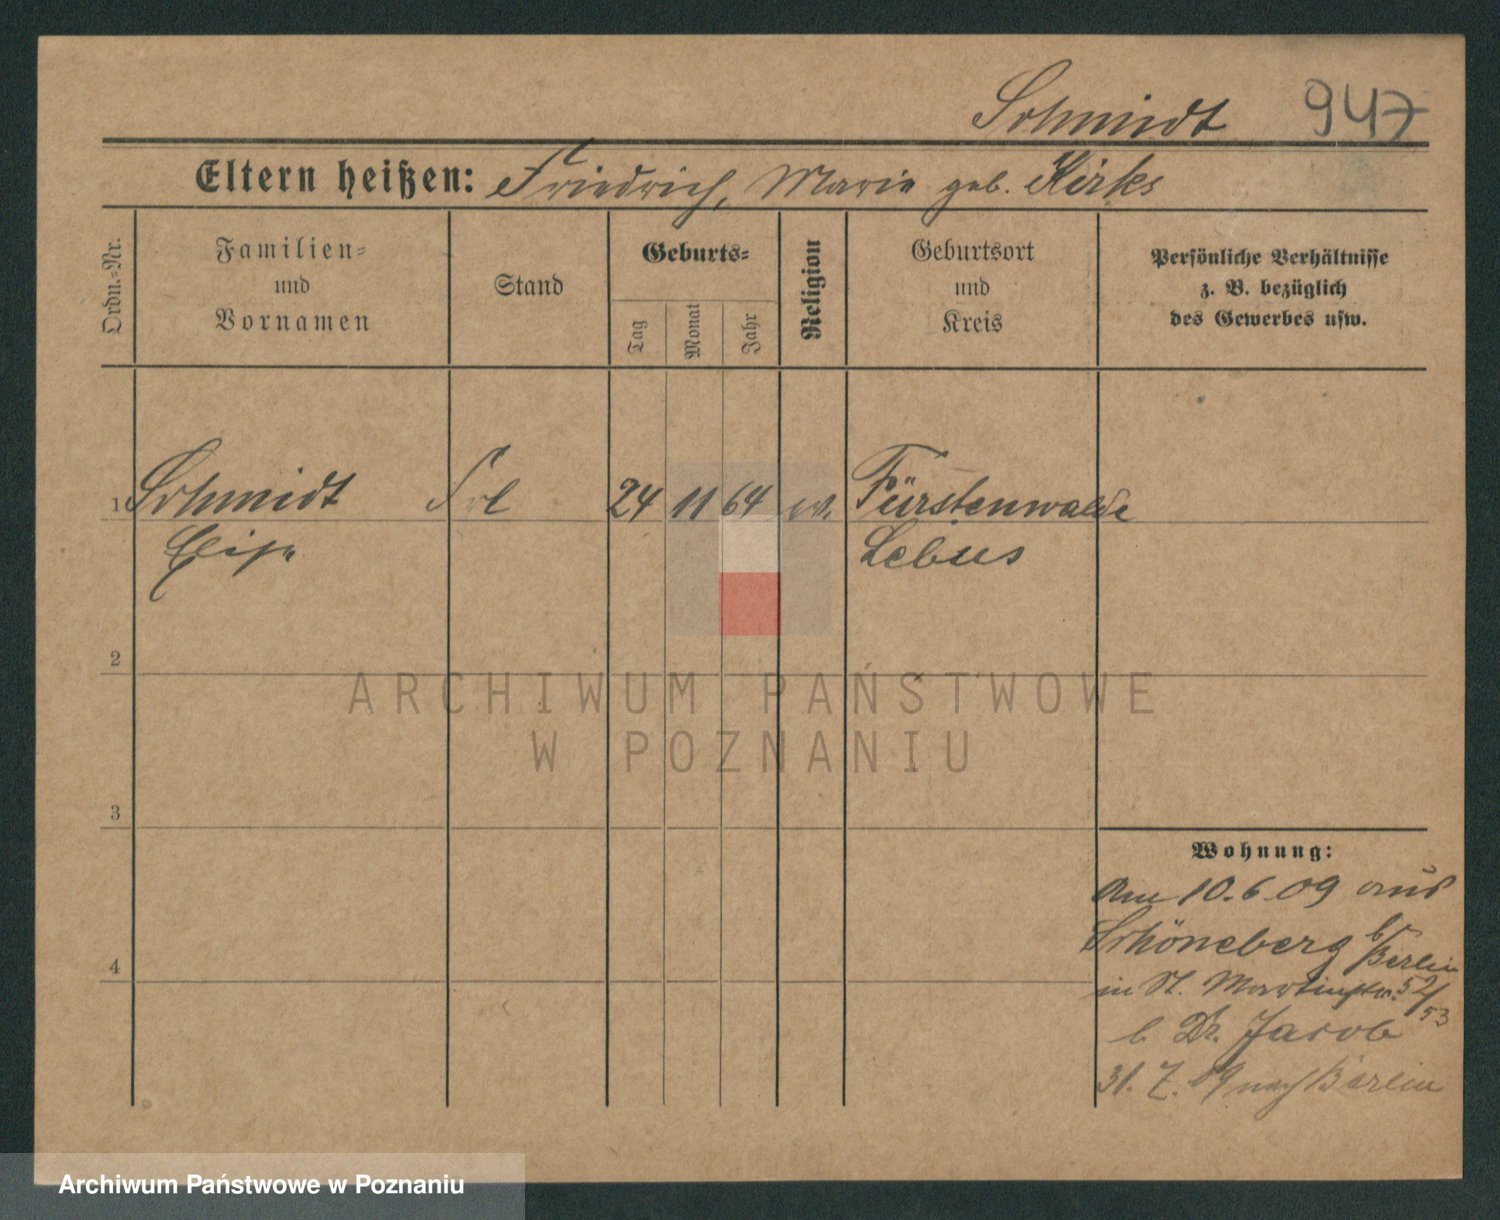 Schmidt 947
Eltern heißen: Friedrich, Marie geb. Kirks
Ordn.-Nr.
Familien-
und
Vornamen
Stand
Geburts-
Tag
Monat
Jahr
Religion
Geburtsort
und
Kreis
Persönliche Verhältnisse
z. B. bezüglich
des Gewerbes usw.
1 Schmidt Frl 24 11 64 ev. Fürstenwalde
Elise Lebus
2
3
4
Wohnung:
Am 10.6.09 aus
Schöneberg b/Berlin
in St. Martinstr. 52/53
b. Dr. Jacob
31. 7. 09 nach Berlin
ARCHIWUM PAŃSTWOWE
W POZNANIU
Archiwum Państwowe w Poznaniu